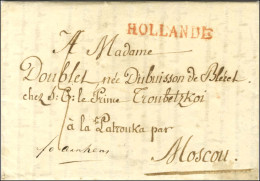 HOLLANDE
A Madame
Doublet née Dubuisson de Bleret
chez S: E: le Prince Troubetzkoi
à la Patrouka par
Moscou.